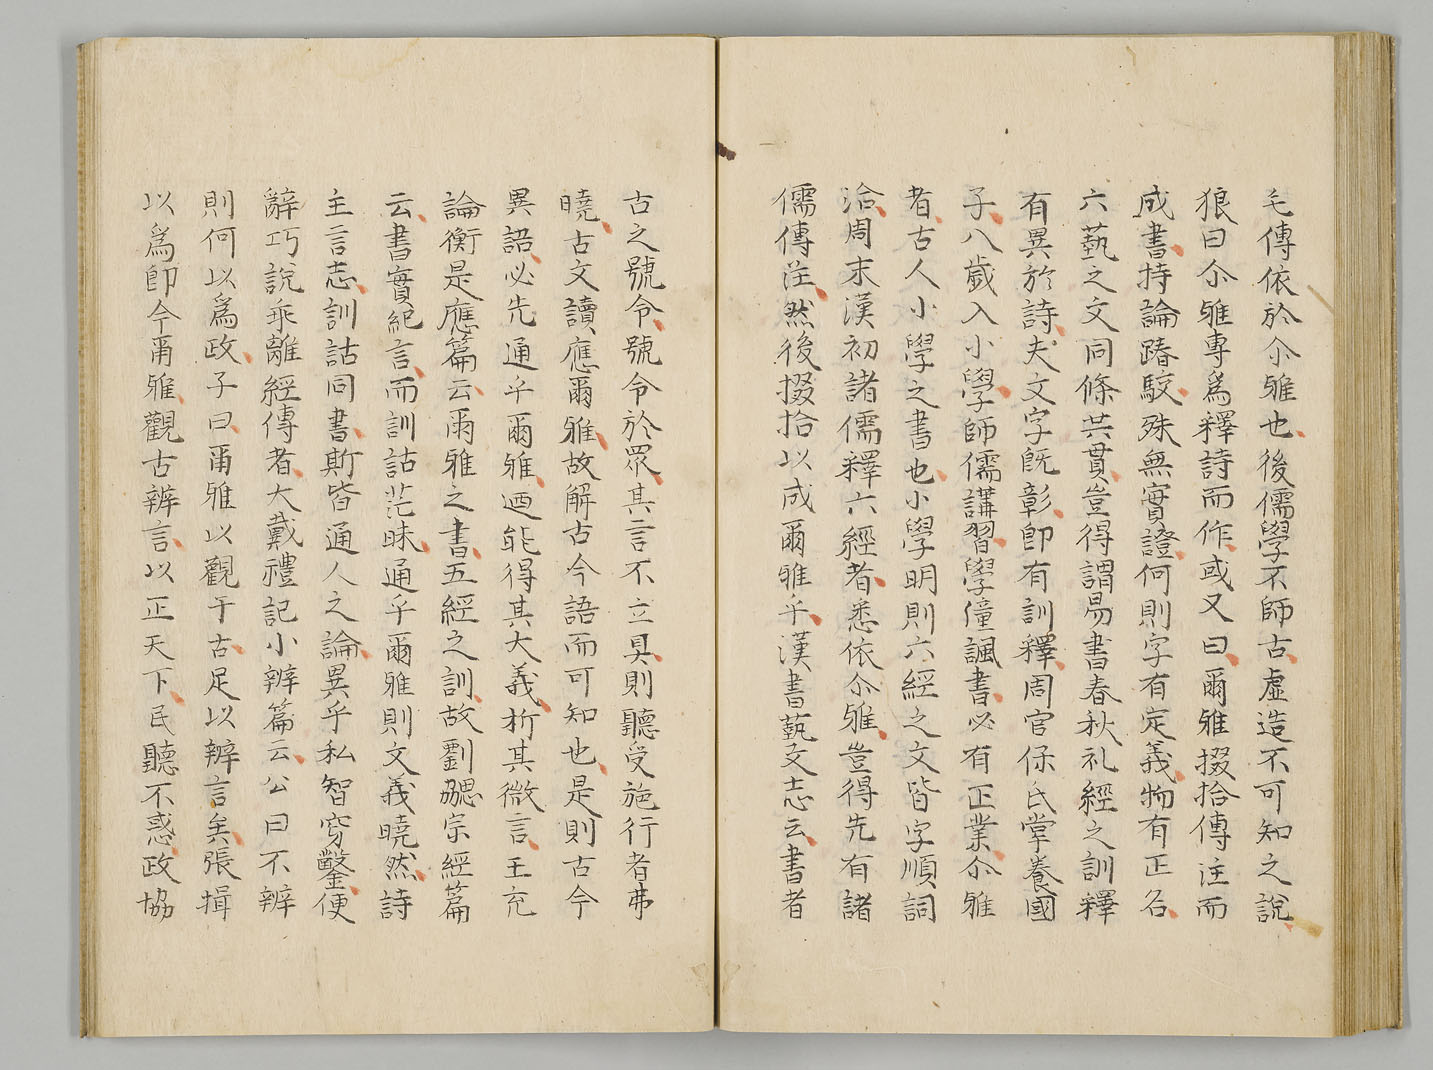 毛傳依於尒雅也後儒學不師古虛造不可知之說
狼曰尒雅專爲釋詩而作或又曰爾雅掇拾傳注而
成書持論踳駁殊無實證何則字有定義物有正名
六藝之文同條共貫豈得謂易書春秋礼經之訓釋
有異於詩夫文字旣彰卽有訓釋周官保氏掌養國
子八歲入小學師儒講習學僮諷書必有正業尒雅
者古人小學之書也小學明則六經之文皆字順詞
洽周末漢初諸儒釋六經者悉依尒雅豈得先有諸
儒傳注然後掇拾以成爾雅乎漢書藝文志云書者
古之號令號令於眾其言不立具則聽受施行者弗
曉古文讀應爾雅故解古今語而可知也是則古今
異語必先通乎爾雅迺能得其大義析其微言王充
論衡是應篇云爾雅之書五經之訓故劉勰宗經篇
云書實紀言而訓詁茫昧通乎爾雅則文義曉然詩
主言志訓詁同書斯皆通人之論異乎私智穿鑿便
辭巧說乖離經傳者大戴禮記小辨篇云公曰不辨
則何以爲政子曰爾雅以觀于古足以辨言矣張揖
以爲卽今爾雅觀古辨言以正天下民聽不惑政協